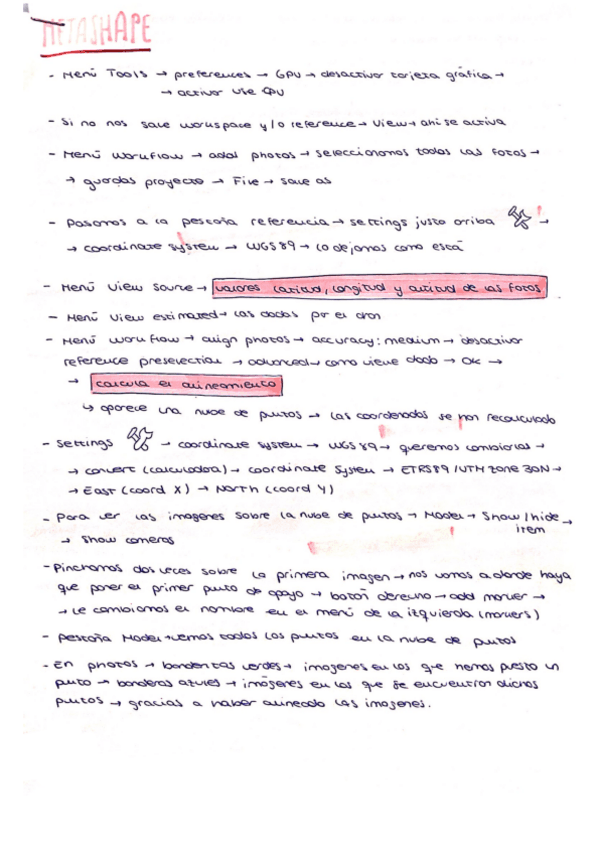 METASHAPE
- Menú Tools → preferences → GPU → desactivar tarjeta gráfica →
→ activar use CPU
- Si no nos sale workspace y/o reference → View → ahi se activa
- Menú workflow → add photos → seleccionamos todas las fotos →
→ guardas proyecto → File → save as
- Pasamos a la pestaña referencia → settings justo arriba →
→ coordinate system → WGS89 → lo dejamos como está
- Menú View source → valores latitud, longitud y altitud de las fotos
- Menú View estimated → las dadas por el dron
- Menú workflow → align photos → accuracy: medium → desactivar
reference preselection → advanced → como viene dado → OK →
→ calcula el alineamiento
↳ aparece una nube de puntos → las coordenadas se han recalculado
- Settings → coordinate system → WGS89 → queremos cambiarlas →
→ convert (calculadora) → coordinate System → ETRS89 / UTM zone 30N →
→ East (coord X) → North (coord Y)
- Para ver las imagenes sobre la nube de puntos → Model → Show/hide →
item
→ show cameras
- Pinchamos dos veces sobre la primera imagen → nos vamos a donde haya
que poner el primer punto de apoyo → botón derecho → add marker →
→ le cambiamos el nombre en el menú de la izquierda (markers)
- pestaña Model → vemos todos los puntos en la nube de puntos
- En photos → banderitas verdes → imagenes en las que hemos puesto un
punto → banderas azules → imágenes en las que se encuentran dichos
puntos → gracias a haber alineado las imagenes.